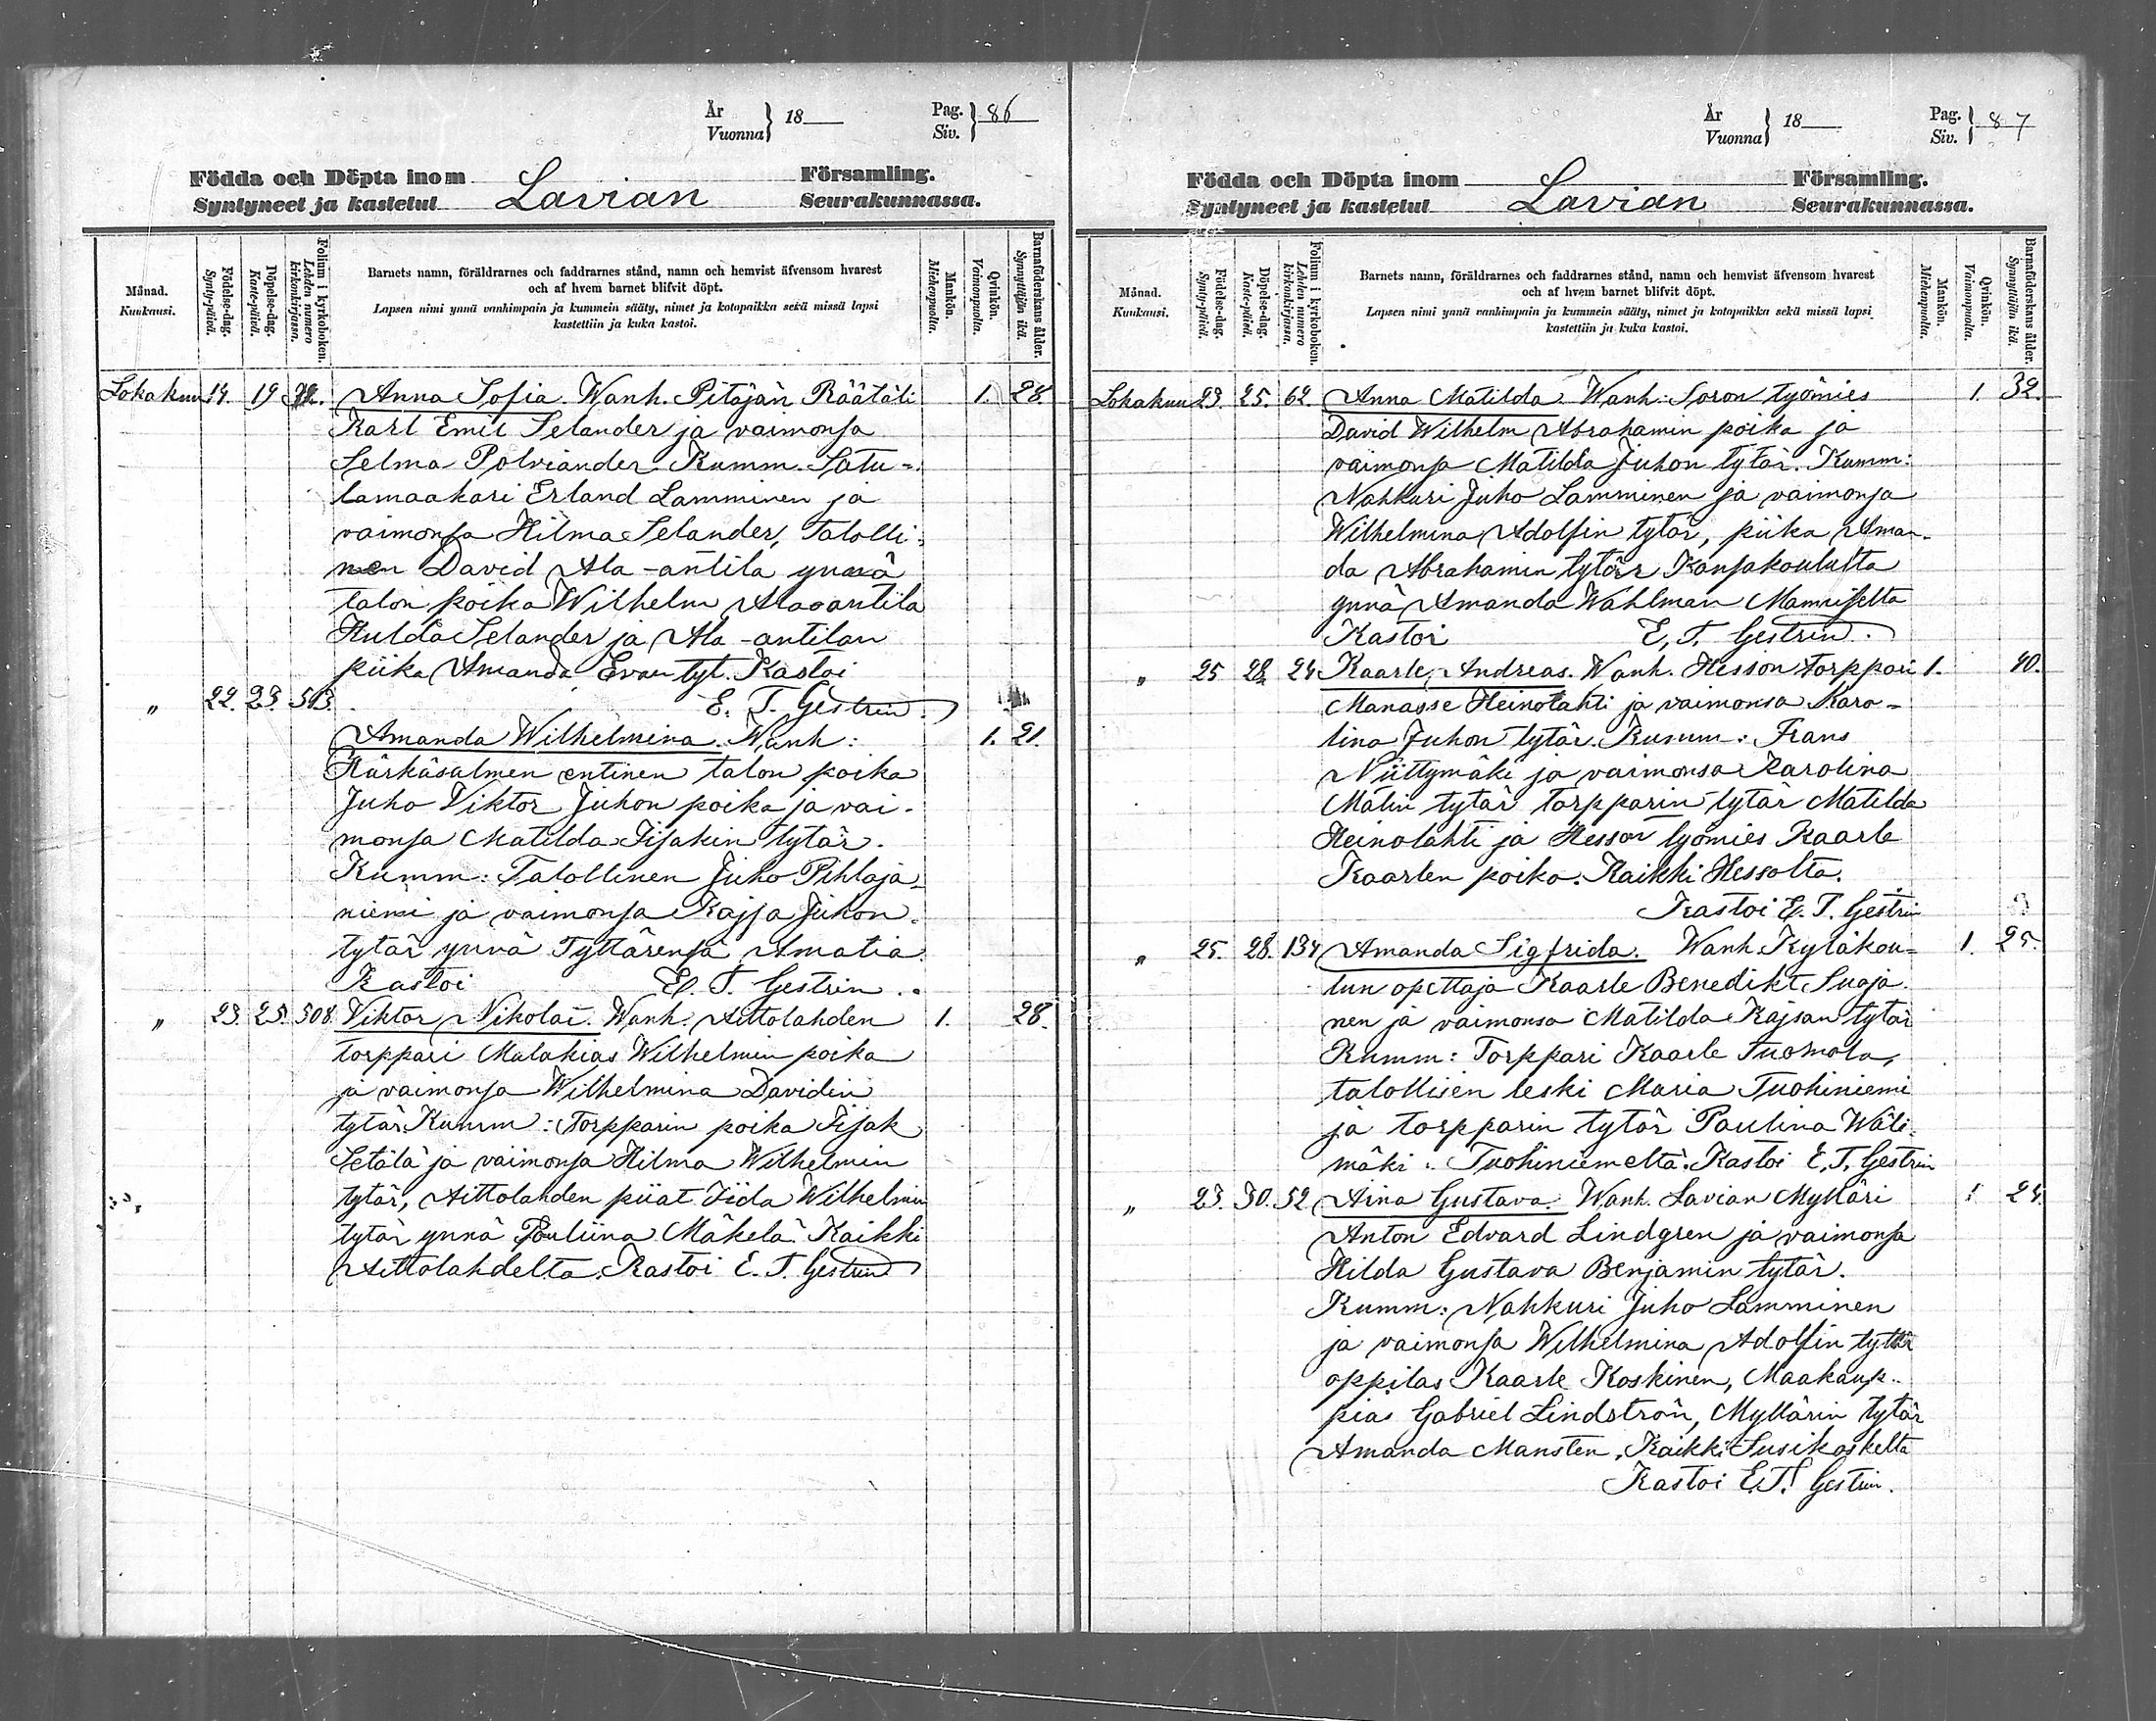 År
Vuonna } 18
Pag.
Siv. } 86
Födda och Döpta inom Församling.
Syntyneet ja kastetut Lavian Seurakunnassa.
Månad.
Kuukausi.
Födelse-dag.
Synty-päivä.
Döpelse-dag.
Kaste-päivä.
Folium i kyrkoboken.
Lehden numero
kirkonkirjassa.
Barnets namn, föräldrarnes och faddrarnes stånd, namn och hemvist äfvensom hvarest
och af hvem barnet blifvit döpt.
Lapsen nimi ynnä vanhimpain ja kummein sääty, nimet ja kotopaikka sekä missä lapsi
kastettiin ja kuka kastoi.
Mankön.
Miehenpuolta.
Qvinkön.
Vaimonpuolta.
Barnaföderskans ålder.
Synnyttäjän ikä.
Lokakuu 14. 19 Anna Sofia. Wanh. Pitäjän Räätäli 1. 28.
Karl Emil Selander ja vaimonsa
Selma Polviander. Kumm. Satu-
lamaakari Erland Lamminen ja
vaimonsa Hilma Selander, Talolli-
nen David Ala-antila ynnä
talon poika Wilhelm Alaantila
Hulda Selander ja Ala-antilan
piika Amanda Evan tyt. Kastoi
" 22. 23. 513. E. T. Gestrin.
Amanda Wilhelmina. Wanh: 1. 21.
Kärkäsalmen entinen talon poika
Juho Viktor Juhon poika ja vai-
monsa Matilda Iisakin tytär.
Kumm: Talollinen Juho Pihlaja-
niemi ja vaimonsa Kajsa Juhon-
tytär ynnä Tyttärensä Amalia
Kastoi E. T. Gestrin.
" 23. 25. 508. Viktor Nikolai. Wanh. Aittolahden 1. 28.
torppari Malakias Wilhelmin poika
ja vaimonsa Wilhelmina Davidin
tytär Kumm: Torpparin poika Iisak
Setälä ja vaimonsa Hilma Wilhelmin
tytär, Aittolahden piiat Iida Wilhelmin
tytär ynnä Pauliina Mäkelä. Kaikki
Aittolahdelta. Kastoi E. T. Gestrin
År
Vuonna } 18
Pag.
Siv. } 87
Födda och Döpta inom Församling.
Syntyneet ja kastetut Lavian Seurakunnassa.
Månad.
Kuukausi.
Födelse-dag.
Synty-päivä.
Döpelse-dag.
Kaste-päivä.
Folium i kyrkoboken.
Lehden numero
kirkonkirjassa.
Barnets namn, föräldrarnes och faddrarnes stånd, namn och hemvist äfvensom hvarest
och af hvem barnet blifvit döpt.
Lapsen nimi ynnä vanhimpain ja kummein sääty, nimet ja kotopaikka sekä missä lapsi
kastettiin ja kuka kastoi.
Mankön.
Miehenpuolta.
Qvinkön.
Vaimonpuolta.
Barnaföderskans ålder.
Synnyttäjän ikä.
Lokakuu 23. 25. 62. Anna Matilda Wanh: Soron työmies 1. 32.
David Wilhelm Abrahamin poika ja
vaimonsa Matilda Juhon tytär. Kumm:
Nahkuri Juho Lamminen ja vaimonsa
Wilhelmina Adolfin tytär, piika Aman-
da Abrahamin tytär Kansakoululta
ynnä Amanda Wahlman Mannisselta
Kastoi E. T. Gestrin.
" 25 28. 24 Kaarle, Andreas. Wanh. Hesson torppari 1. 40.
Manasse Heinolahti ja vaimonsa Karo-
lina Juhon tytär. Kumm: Frans
Niittymäki ja vaimonsa Karolina
Matin tytär torpparin tytär Matilda
Heinolahti ja Hesson työmies Kaarle
Kaarlen poika. Kaikki Hessolta.
Kastoi E. T. Gestrin
" 25. 28. 134 Amanda Sigfrida. Wanh. Kyläkou- 1. 25.
lun opettaja Kaarle Benedikt Suoja-
nen ja vaimonsa Matilda Kajsan tytär
Kumm: Torppari Kaarle Tuomola,
talollisen leski Maria Tuohiniemi
ja torpparin tytär Paulina Wäli-
mäki. Tuohiniemeltä. Kastoi E. T. Gestrin
" 23. 30. 52 Aina Gustava. Wanh. Lavian Mylläri 1 24.
Anton Edvard Lindgren ja vaimonsa
Hilda Gustava Benjamin tytär.
Kumm: Nahkuri Juho Lamminen
ja vaimonsa Wilhelmina Adolfin tytär
oppilas Kaarle Koskinen, Maakaup-
pias Gabriel Lindström, Myllärin tytär
Amanda Mansten. Kaikki Susikoskelta
Kastoi E. T. Gestrin.